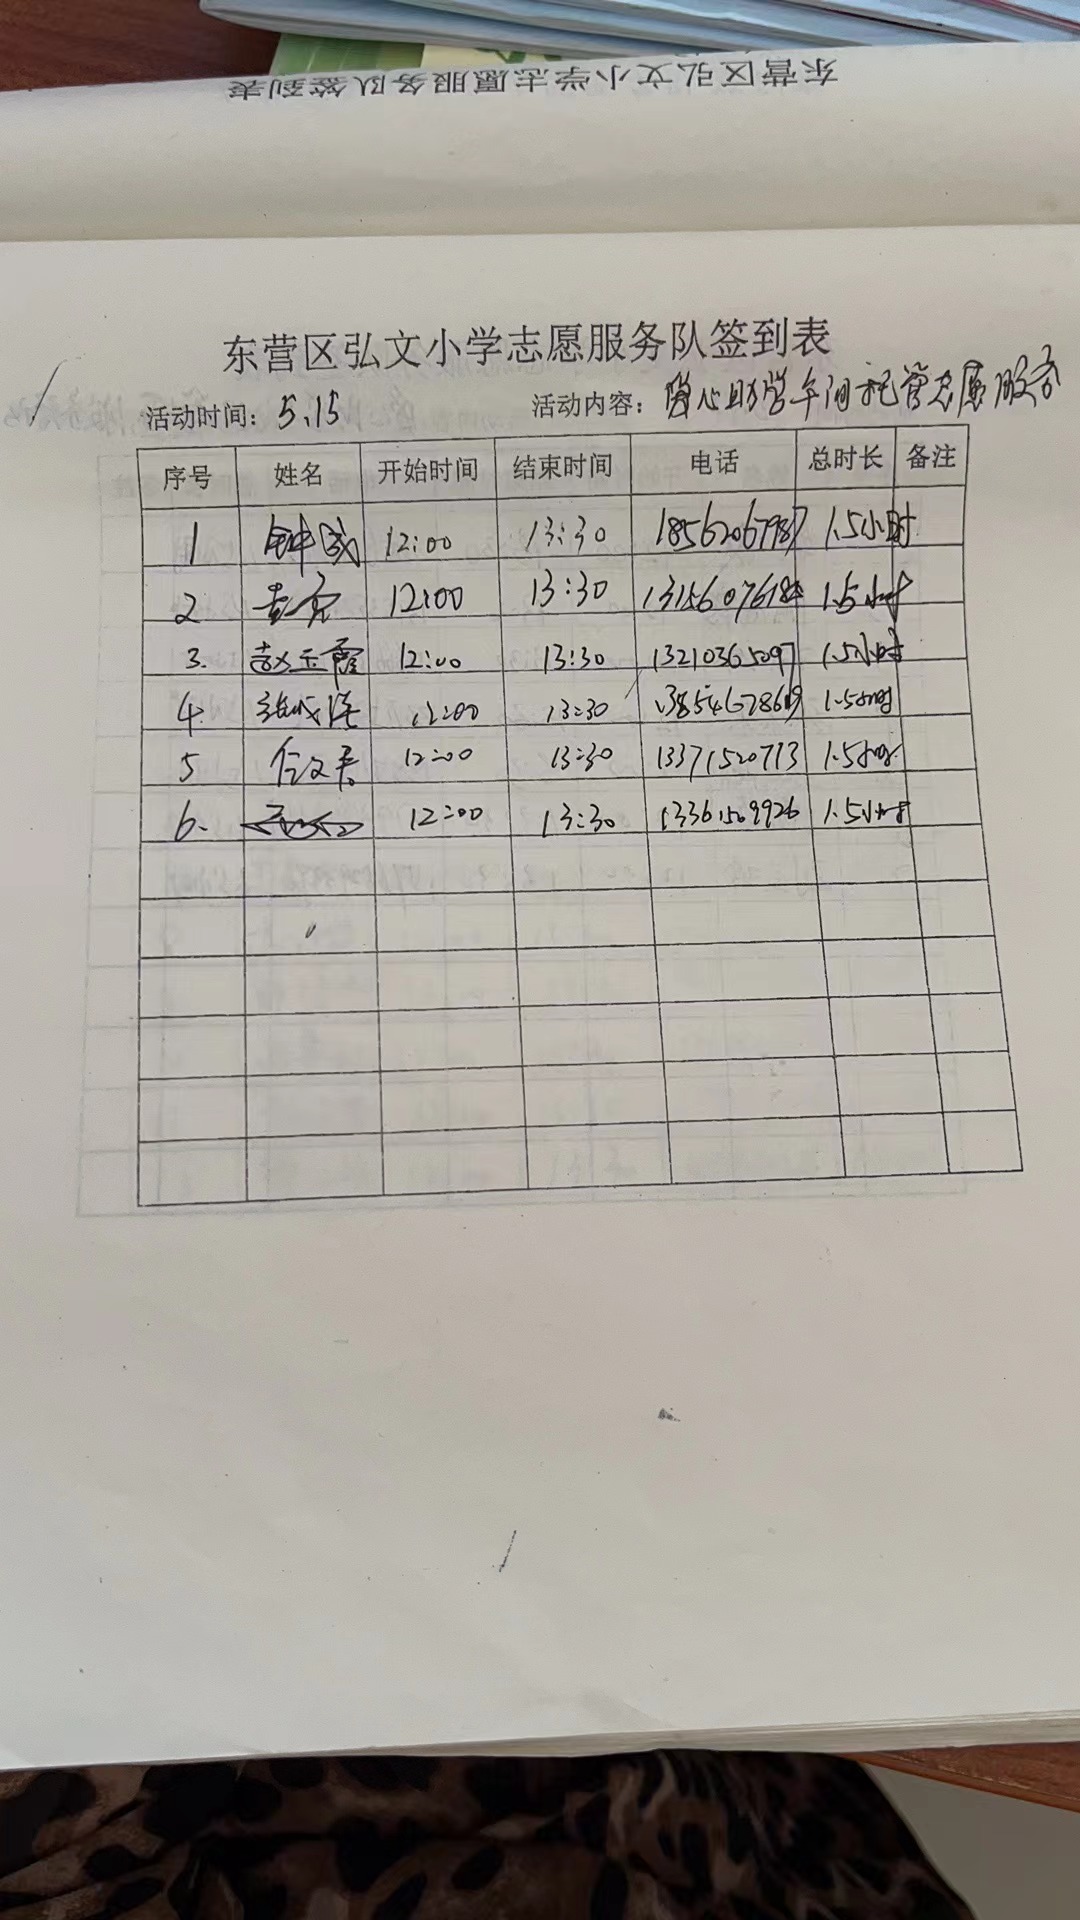 东营区弘文小学志愿服务队签到表
东营区弘文小学志愿服务队签到表
活动时间: 5.15 活动内容: 爱心助学午间托管志愿服务
序号 姓名 开始时间 结束时间 电话 总时长 备注
1 钟成 12:00 13:30 18562067987 1.5小时
2 12:00 13:30 1.5小时
3. 赵玉霞 12:00 13:30 13210365097 1.5小时
4. 12:00 13:30 1.5小时
5 12:00 13:30 13371520713 1.5小时
6. 12:00 13:30 13361509926 1.5小时